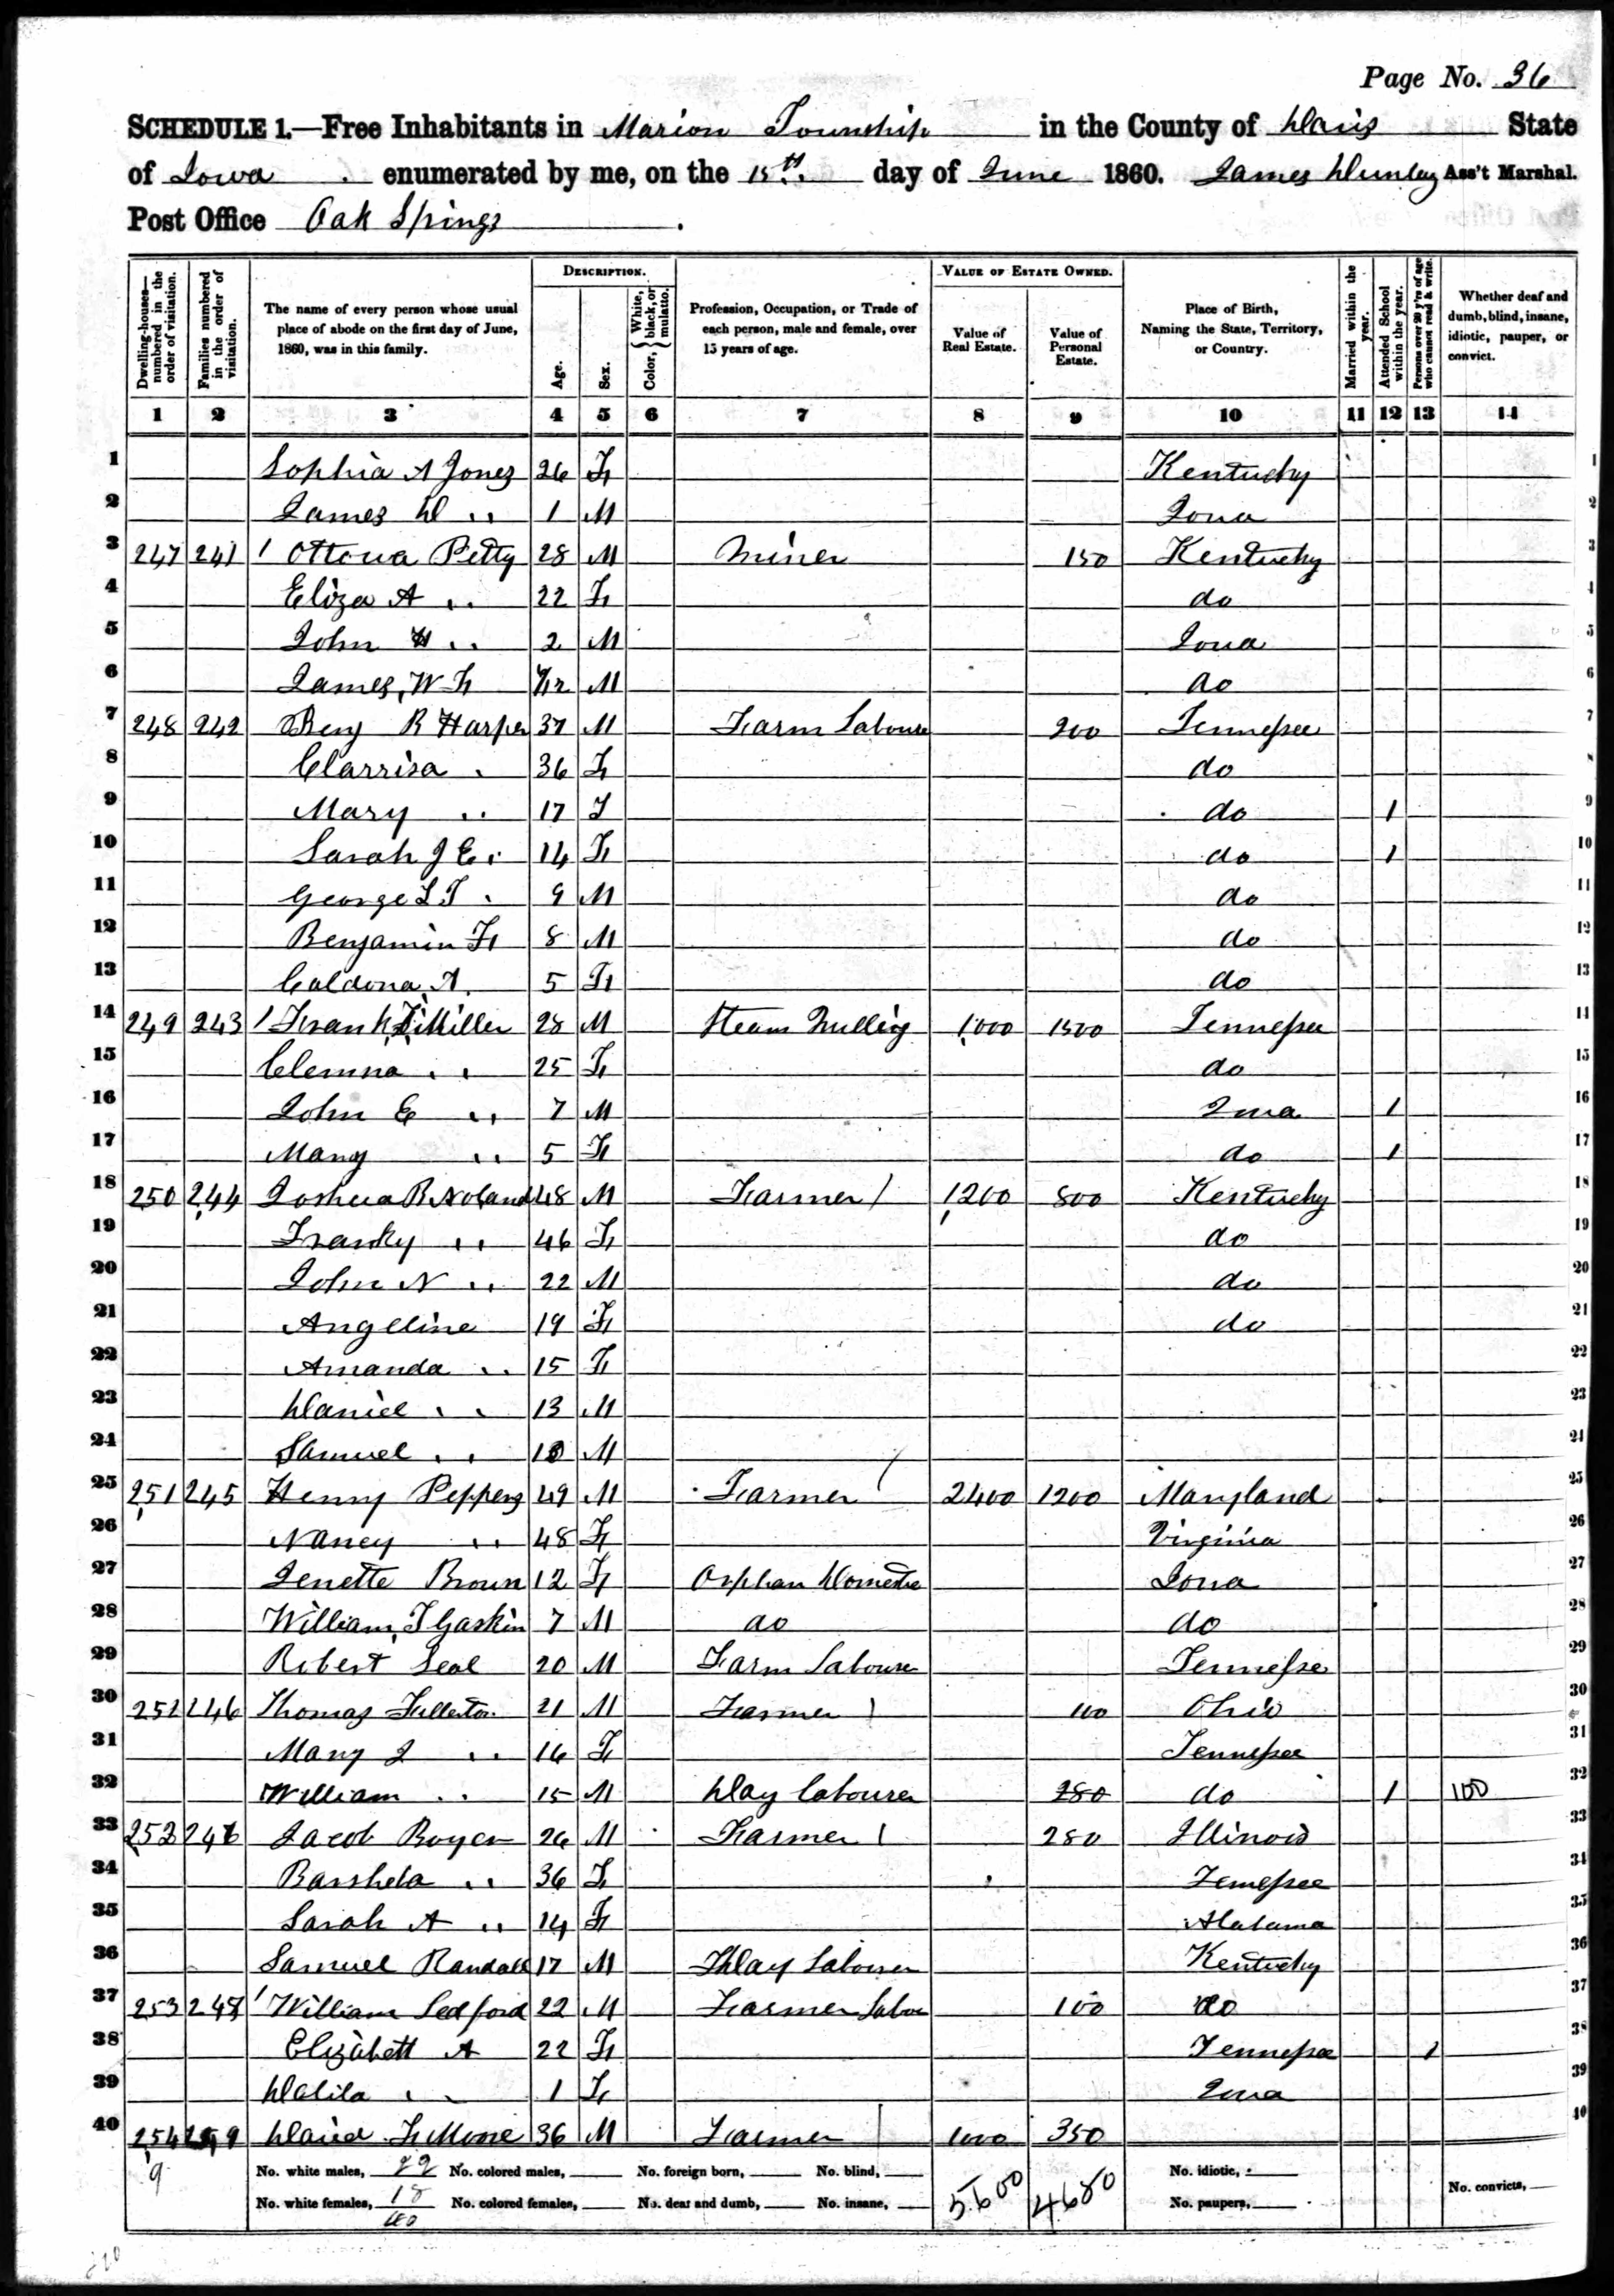 Page No. 36
SCHEDULE 1.—Free Inhabitants in Marion Township in the County of Davis State
of Iowa enumerated by me, on the 15th day of June 1860. James Dunlay Ass't Marshal.
Post Office Oak Springs
Dwelling-houses—numbered in the order of visitation. Families numbered in the order of visitation. The name of every person whose usual place of abode on the first day of June, 1860, was in this family. DESCRIPTION. Age. Sex. Color, {White, black, or mulatto. Profession, Occupation, or Trade of each person, male and female, over 15 years of age. VALUE OF ESTATE OWNED. Value of Real Estate. Value of Personal Estate. Place of Birth, Naming the State, Territory, or Country. Married within the year. Attended School within the year. Persons over 20 y'rs of age who cannot read & write. Whether deaf and dumb, blind, insane, idiotic, pauper, or convict.
1 2 3 4 5 6 7 8 9 10 11 12 13 14
1 Sophia A Jones 26 F Kentucky 1
2 James D " 1 M Iowa 2
3 247 241 / Ottowa Petty 28 M Miner 150 Kentucky 3
4 Eliza A " 22 F do 4
5 John H " 2 M Iowa 5
6 James W F M do 6
7 248 242 Benj R Harper 37 M Farm Labourer 200 Tennessee 7
8 Clarrisa " 36 F do 8
9 Mary " 17 F do 1 9
10 Sarah J E " 14 F do 1 10
11 George L T " 9 M do 11
12 Benjamin F 8 M do 12
13 Caldona A 5 F do 13
14 249 243 / Frank Miller 28 M Steam Milling 1000 1500 Tennessee 14
15 Clemna " 25 F do 15
16 John E " 7 M Iowa 1 16
17 Mary " 5 F do 1 17
18 250 244 Joshua R Noland 48 M Farmer / 1200 800 Kentucky 18
19 Franky " 46 F do 19
20 John N " 22 M do 20
21 Angeline 19 F do 21
22 Amanda " 15 F 22
23 Daniel " 13 M 23
24 Samuel " 10 M 24
25 251 245 Henry Peppers 49 M Farmer / 2400 1200 Maryland 25
26 Nancy " 48 F Virginia 26
27 Jenette Brown 12 F Orphan Domestic Iowa 27
28 William T Gaskin 7 M do do 28
29 Robert Seal 20 M Farm Labourer Tennessee 29
30 252 246 Thomas Fullerton 21 M Farmer 100 Ohio 30
31 Mary J " 16 F Tennessee 31
32 William " 15 M Day Labourer 280 do 1 100 32
33 252 246 Jacob Boyer 26 M Farmer 280 Illinois 33
34 Barsheba " 36 F Tennessee 34
35 Sarah A " 14 F Alabama 35
36 Samuel Randall 17 M Day Labourer Kentucky 36
37 253 247 / William Ledford 22 M Farmer Labor 100 do 37
38 Elizabett A 22 F Tennessee 1 38
39 Dalila " 1 F Iowa 39
40 254 David F Moore 36 M Farmer 1000 350 40
9 No. white males, 22 No. colored males, No. foreign born, No. blind, 5600 4680 No. idiotic,
No. white females, 18 No. colored females, No. deaf and dumb, No. insane, No. paupers, No. convicts,
40